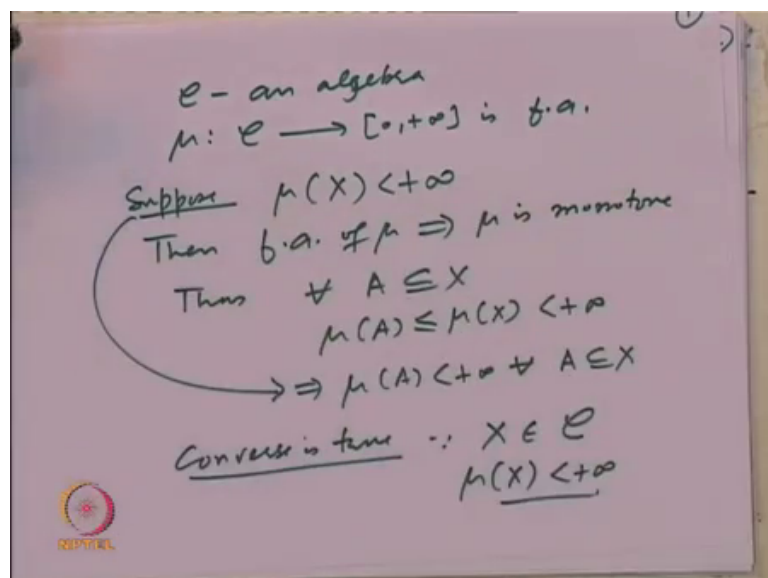 ①
C - an algebra
μ: C → [0, +∞] is f.a.
Suppose μ(X) < +∞
Then f.a. of μ ⇒ μ is monotone
Thus ∀ A ⊆ X
μ(A) ≤ μ(X) < +∞
⇒ μ(A) < +∞ ∀ A ⊆ X
Converse is true ∵ X ∈ C
μ(X) < +∞
NPTEL